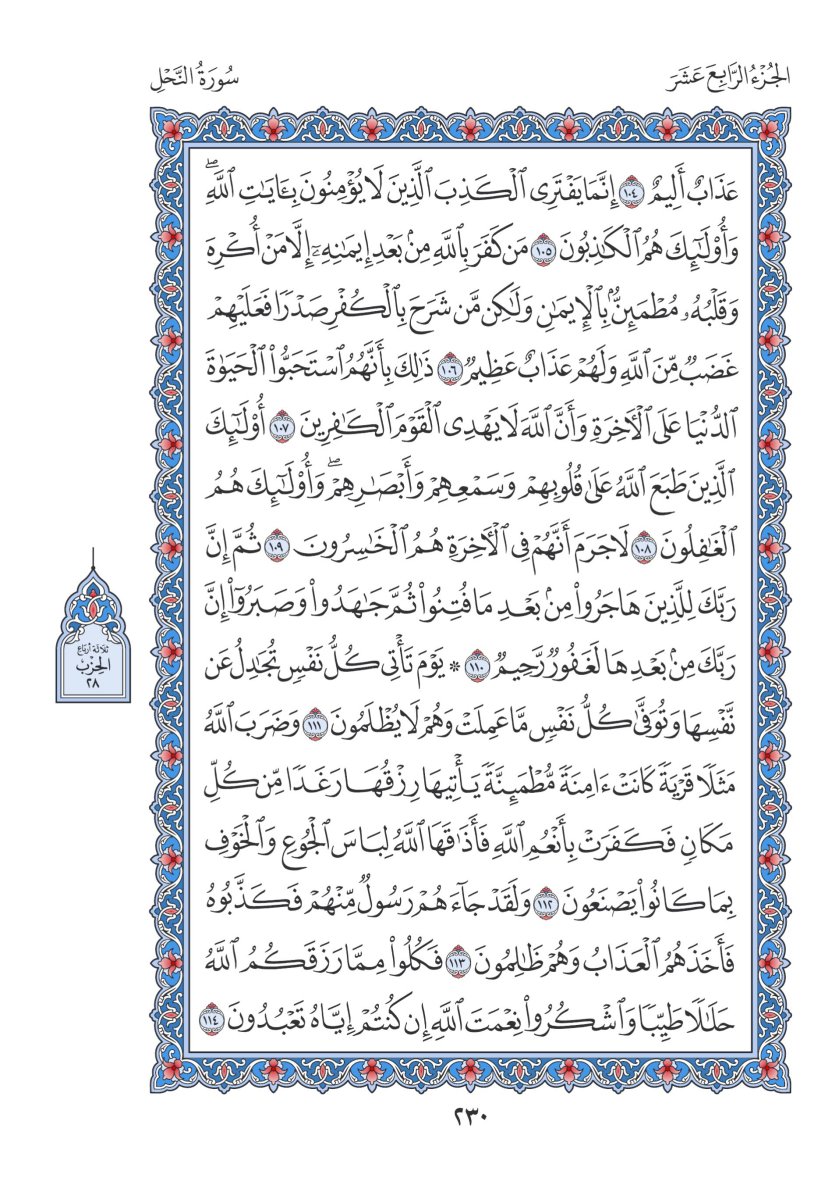 الجُزْءُ الرَّابِعَ عَشَرَ
سُورَةُ النَّحْلِ
عَذَابٌ أَلِيمٌ ١٠٤ إِنَّمَا يَفْتَرِى ٱلْكَذِبَ ٱلَّذِينَ لَا يُؤْمِنُونَ بِـَٔايَـٰتِ ٱللَّهِۖ
وَأُو۟لَـٰٓئِكَ هُمُ ٱلْكَـٰذِبُونَ ١٠٥ مَن كَفَرَ بِٱللَّهِ مِنۢ بَعْدِ إِيمَـٰنِهِۦٓ إِلَّا مَنْ أُكْرِهَ
وَقَلْبُهُۥ مُطْمَئِنٌّۢ بِٱلْإِيمَـٰنِ وَلَـٰكِن مَّن شَرَحَ بِٱلْكُفْرِ صَدْرًا فَعَلَيْهِمْ
غَضَبٌ مِّنَ ٱللَّهِ وَلَهُمْ عَذَابٌ عَظِيمٌ ١٠٦ ذَٰلِكَ بِأَنَّهُمُ ٱسْتَحَبُّوا۟ ٱلْحَيَوٰةَ
ٱلدُّنْيَا عَلَى ٱلْـَٔاخِرَةِ وَأَنَّ ٱللَّهَ لَا يَهْدِى ٱلْقَوْمَ ٱلْكَـٰفِرِينَ ١٠٧ أُو۟لَـٰٓئِكَ
ٱلَّذِينَ طَبَعَ ٱللَّهُ عَلَىٰ قُلُوبِهِمْ وَسَمْعِهِمْ وَأَبْصَـٰرِهِمْۖ وَأُو۟لَـٰٓئِكَ هُمُ
ٱلْغَـٰفِلُونَ ١٠٨ لَا جَرَمَ أَنَّهُمْ فِى ٱلْـَٔاخِرَةِ هُمُ ٱلْخَـٰسِرُونَ ١٠٩ ثُمَّ إِنَّ
رَبَّكَ لِلَّذِينَ هَاجَرُوا۟ مِنۢ بَعْدِ مَا فُتِنُوا۟ ثُمَّ جَـٰهَدُوا۟ وَصَبَرُوٓا۟ إِنَّ
رَبَّكَ مِنۢ بَعْدِهَا لَغَفُورٌ رَّحِيمٌ ١١٠ * يَوْمَ تَأْتِى كُلُّ نَفْسٍ تُجَـٰدِلُ عَن
نَّفْسِهَا وَتُوَفَّىٰ كُلُّ نَفْسٍ مَّا عَمِلَتْ وَهُمْ لَا يُظْلَمُونَ ١١١ وَضَرَبَ ٱللَّهُ
مَثَلًا قَرْيَةً كَانَتْ ءَامِنَةً مُّطْمَئِنَّةً يَأْتِيهَا رِزْقُهَا رَغَدًا مِّن كُلِّ
مَكَانٍ فَكَفَرَتْ بِأَنْعُمِ ٱللَّهِ فَأَذَٰقَهَا ٱللَّهُ لِبَاسَ ٱلْجُوعِ وَٱلْخَوْفِ
بِمَا كَانُوا۟ يَصْنَعُونَ ١١٢ وَلَقَدْ جَآءَهُمْ رَسُولٌ مِّنْهُمْ فَكَذَّبُوهُ
فَأَخَذَهُمُ ٱلْعَذَابُ وَهُمْ ظَـٰلِمُونَ ١١٣ فَكُلُوا۟ مِمَّا رَزَقَكُمُ ٱللَّهُ
حَلَـٰلًا طَيِّبًا وَٱشْكُرُوا۟ نِعْمَتَ ٱللَّهِ إِن كُنتُمْ إِيَّاهُ تَعْبُدُونَ ١١٤
ثلاثة أرباع
الحِزْب
٢٨
٢٣٠